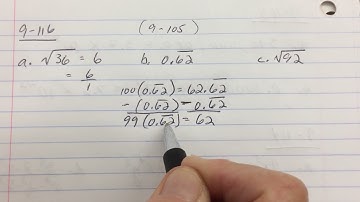 9-116 (9-105)
a. √36 = 6 b. 0.6̅2̅ c. √42
= 6/1
100(0.6̅2̅) = 62.6̅2̅
- (0.6̅2̅) - 0.6̅2̅
99(0.6̅2̅) = 62